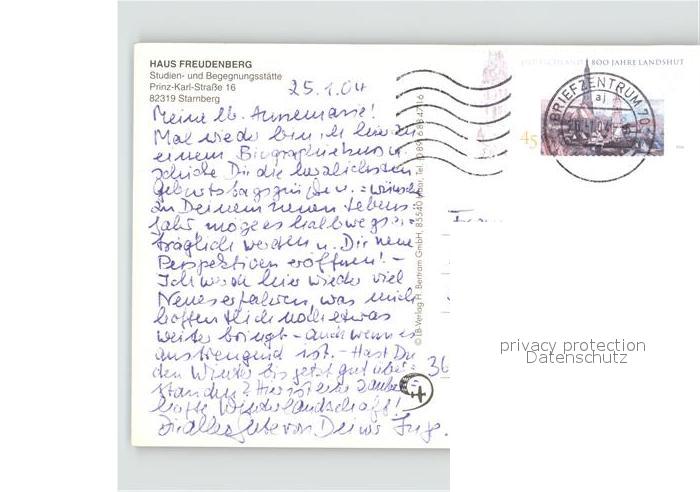 HAUS FREUDENBERG
Studien- und Begegnungsstätte
Prinz-Karl-Straße 16
82319 Starnberg
25.1.04
DEUTSCHLAND 800 JAHRE LANDSHUT
BRIEFZENTRUM 70
aj
45
Meine lb. Annemarie!
Mal wieder bin ich hier zu
einem Biographiekurs u.
schicke Dir die herzlichsten
Geburtstagsgrüße u. -wünsche
zu Deinem neuen Lebens-
jahr, möge es halbwegs er-
träglich werden u. Dir neue
Perspektiven eröffnen! -
Ich werde hier wieder viel
Neues erfahren, was mich
hoffentlich noch etwas
weiter bringt - auch wenn es
anstrengend ist. - Hast Du
den Winter bis jetzt gut über-
standen? Hier ist eine zauber-
hafte Winterlandschaft!
Dir alles Gute von Deiner Inge.
© LB-Verlag H. Bertram GmbH, 85540 Haar, Tel.
36
privacy protection
Datenschutz